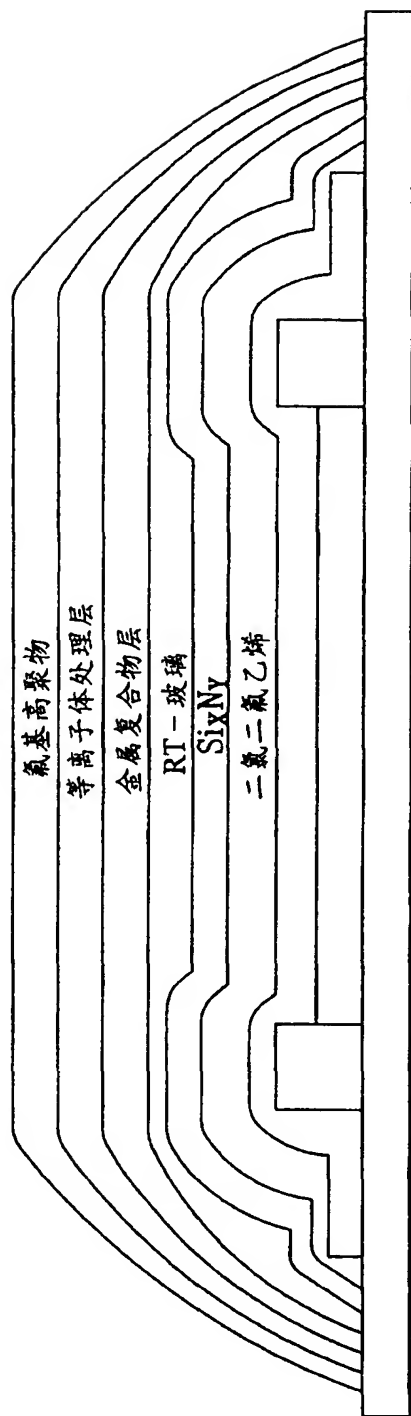 氟基高聚物
等离子体处理层
金属复合物层
RT-玻璃
SixNy
二氯二氟乙烯